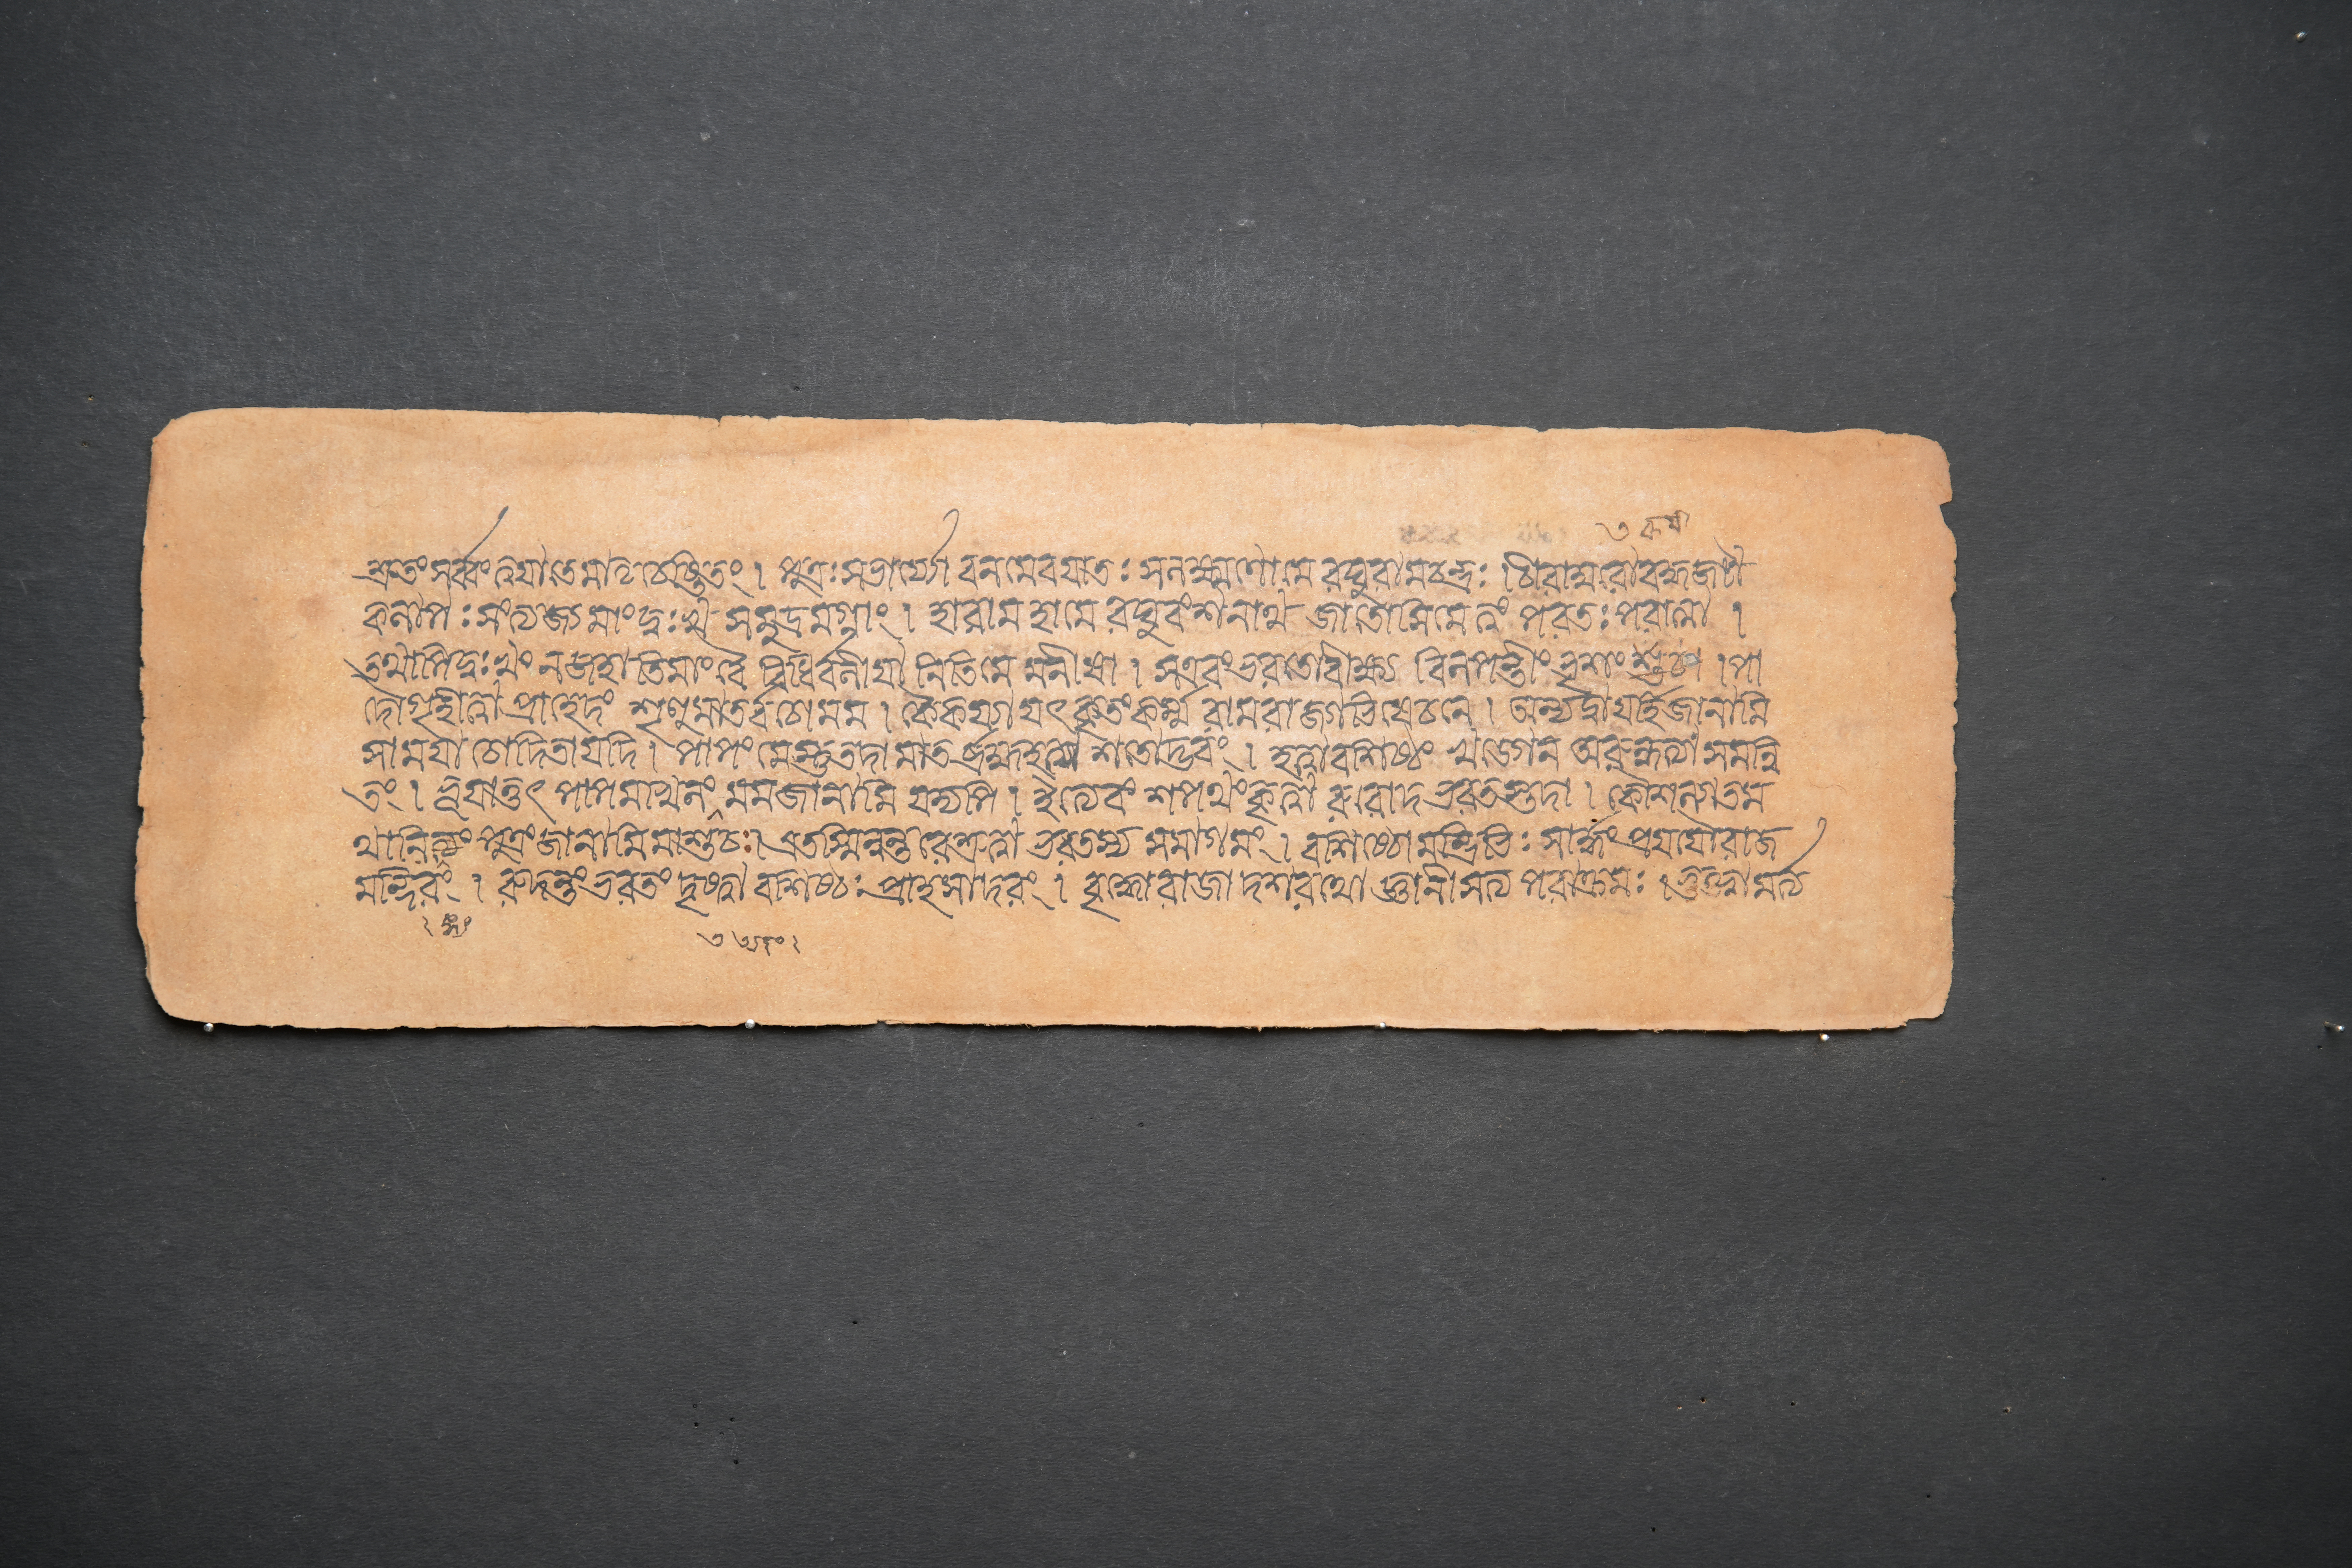 শ্রুতং সর্ব্বং ত্বযা তে মাতৃচেষ্টিতং । পুত্রঃ সভার্য্যো বনমেব যাতঃ সলক্ষ্মণো মে রঘুরামচন্দ্রঃ । চীরাম্বরো বদ্ধজটা
কলাপঃ সংত্যজ্য মাং দুঃখসমুদ্রমগ্নাং । হা রাম হা মে রঘুবংশনাথ জাতোসি মে ত্বং পরতঃ পরাত্মা ।
তথাপি দুঃখং ন জহাতি মাং বৈ বিধির্বলীযানিতি মে মনীষা । স এবং ভরতো বীক্ষ্য বিলপন্তীং ভৃশং শুচা । পা
দৌ গৃহীত্বা প্রাহেদং শৃণু মাতর্বচো মম । কৈকয্যা যৎ কৃতং কর্ম্ম রামরাজ্যাভিষেচনে । অন্যদ্বা যর্হি জানামি
সা মযা চোদিতা যদি । পাপং মেস্তু তদা মাতর্ব্রহ্মহত্যাশতোদ্ভবং । হত্বা বশিষ্ঠং খড্গেন অরুন্ধত্যা সমন্বি
তং । ভূযাত্তৎ পাপমখিলং মম জানামি যদ্যপি । ইত্যেবং শপথং কৃত্বা রুরোদ ভরতস্তদা । কৌশল্যা তম
থালিঙ্গ্য পুত্রং জানামি মা শুচঃ । এতস্মিন্নন্তরে শ্রুত্বা ভরতস্য সমাগমং । বশিষ্ঠো মন্ত্রিভিঃ সার্দ্ধং প্রযযৌ রাজ
মন্দিরং । রুদন্তং ভরতং দৃষ্ট্বা বশিষ্ঠঃ প্রাহ সাদরং । বৃদ্ধো রাজা দশরথো জ্ঞানী সত্যপরাক্রমঃ । ভুক্ত্বা মর্ত্য